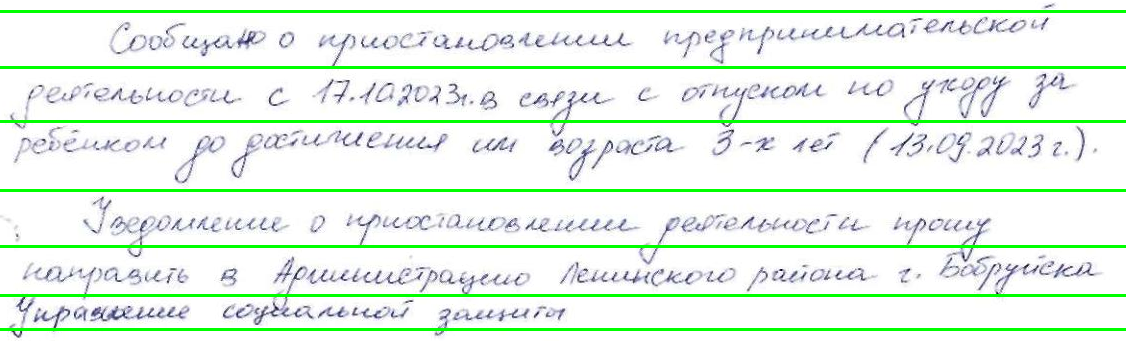 Сообщаю о приостановлении предпринимательской
деятельности с 17.10.2023г. в связи с отпуском по уходу за
ребёнком до достижения им возраста 3-х лет (13.09.2023 г.).
Уведомление о приостановлении деятельности прошу
направить в Администрацию Ленинского района г. Бобруйска
Управление социальной защиты